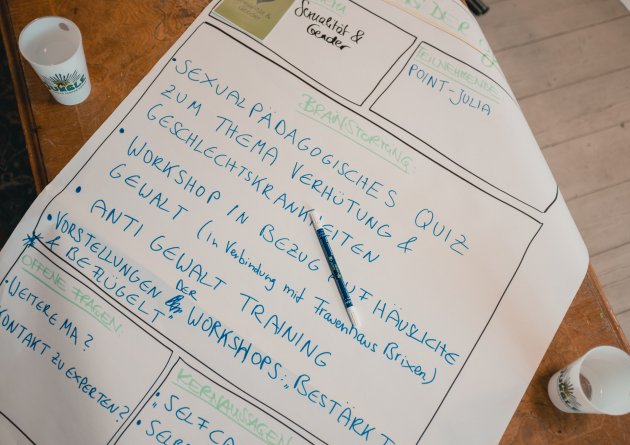 Sexualität &
Gender
TEILNEHMENDE:
POINT-JULIA
BRAINSTORMING:
• SEXUALPÄDAGOGISCHES QUIZ
ZUM THEMA VERHÜTUNG &
GESCHLECHTSKRANKHEITEN
• WORKSHOP IN BEZUG AUF HÄUSLICHE
GEWALT (in Verbindung mit Frauenhaus Brixen)
• ANTI GEWALT TRAINING
• VORSTELLUNGEN DER WORKSHOPS: „BESTÄRKT
& BEFLÜGELT"
OFFENE FRAGEN:
• WEITERE MA?
KONTAKT ZU EXPERTEN?
KERNAUSSAGEN
• SELF